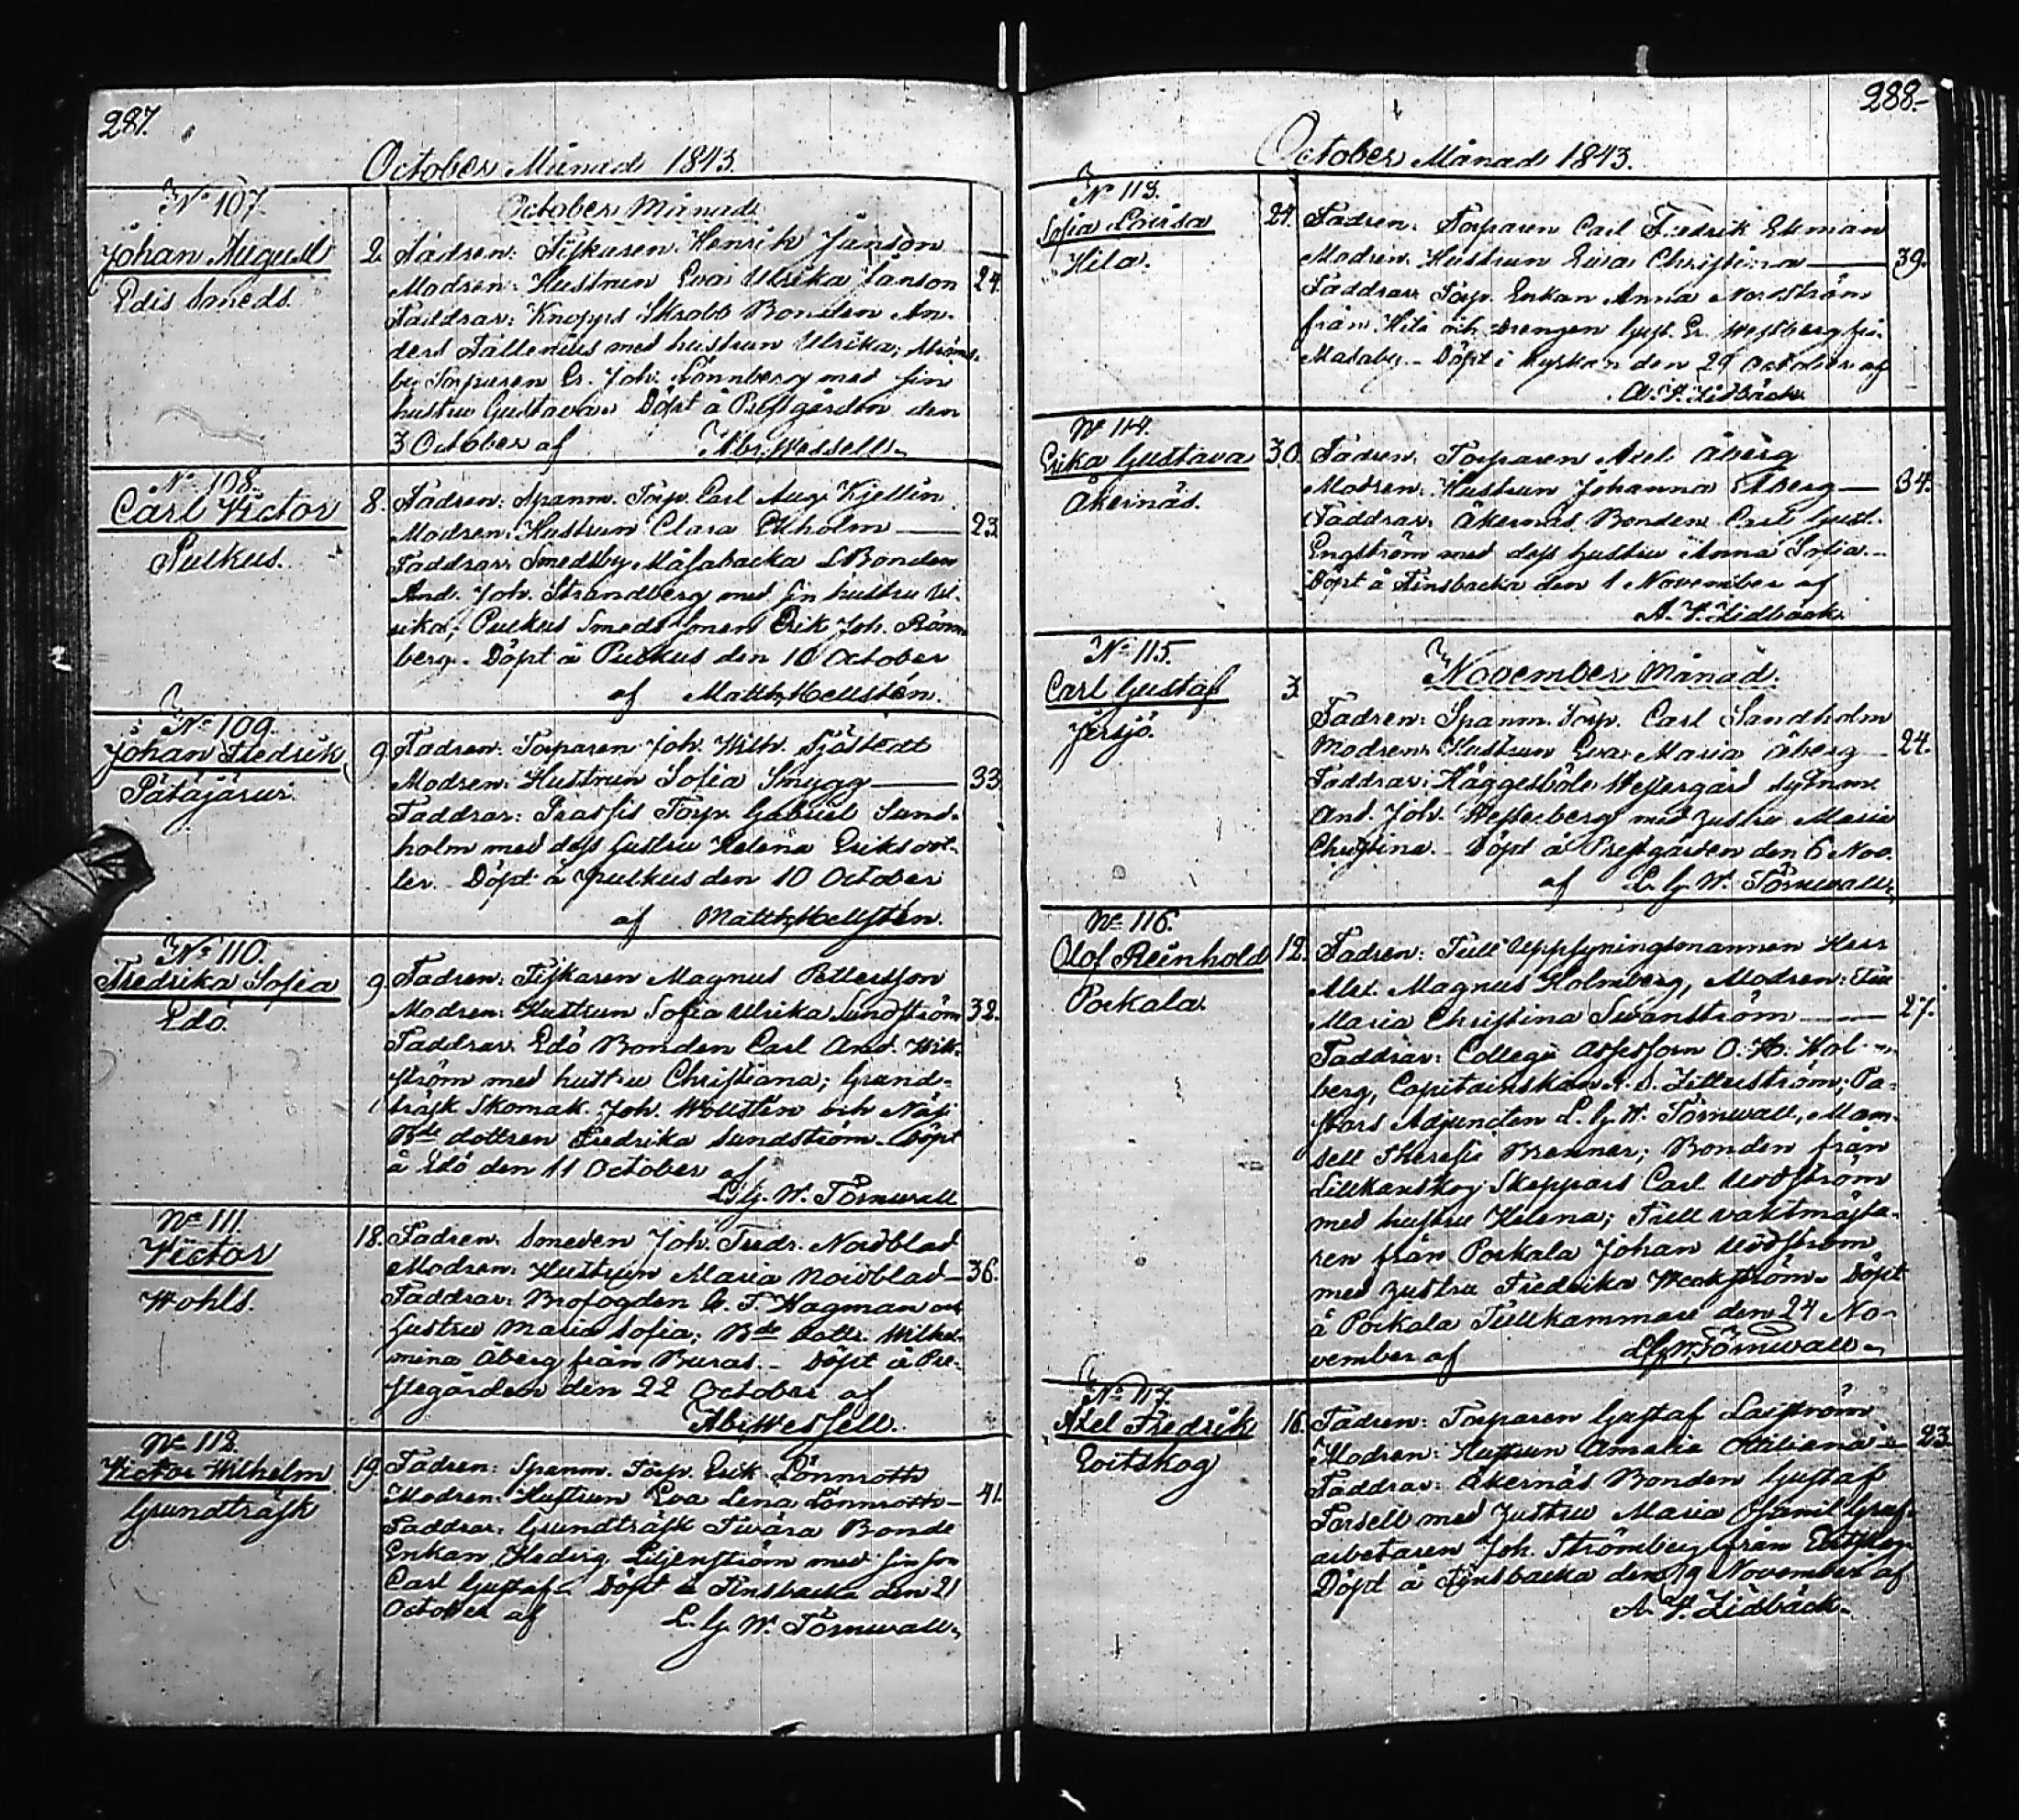 287.
October Månad 1843.
No 107.
Johan August
Edis Smeds.
October Månad
2. Fadren: Fiskaren Henrik Janson
Modren: Hustrun Eva Ulrika Janson 24.
Faddrar: Knopps Skrobb Bonden An-
ders Fällenius med hustrun Ulrika;
by Torparen Er. Joh. Lönnberg med sin
hustru Gustava. Döpt å Prestgården den
3 October af Abr. Wessell.
No 108.
Carl Victor
Pulkus.
8. Fadren: Spanm. Torp. Carl Aug. Kjellin
Modren: Hustrun Clara Ekholm — 23
Faddrar: Smedsby Måsabacka Bonden
And. Joh. Strandberg med sin hustru Ul-
rika; Pulkus Smeds sonen Erik Joh. Rönn
berg. Döpt å Pulkus den 10 October
af Matth. Hellstén.
No 109.
Johan Fredrik
Pätäjärvi.
9. Fadren: Torparen Joh. Wilh. Sjöstedt
Modren: Hustrun Sofia Snygg — 33
Faddrar: Torp. Gabriel Sund-
holm med dess hustru Helena Eriksdot-
ter. Döpt å Pulkus den 10 October
af Matth. Hellstén.
No 110.
Fredrika Sofia
Edö.
9 Fadren: Fiskaren Magnus Pettersson
Modren: Hustrun Sofia Ulrika Sundström 32.
Faddrar: Edö Bonden Carl And. Wik-
ström med hustru Christiana; Grund-
träsk Skomak. Joh. Wallstén och Näse
Bde dottren Fredrika Sundström. Döpt
å Edö den 11 October af
L. G. W. Törnwall
No 111.
Victor
Wohls.
18. Fadren: Smeden Joh. Fredr. Nordblad
Modren: Hustrun Maria Nordblad — 36.
Faddrar: Brofogden G. F. Hagman och
hustru Maria Sofia; Bde dottr. Wilhel-
mina Åberg från Buras. Döpt å Pre-
stegården den 22 October af
Abr. Wessell.
No 112.
Victor Wilhelm
Grundträsk
19. Fadren: Spanm. Torp. Erik Lönnroth
Modren: Hustrun Eva Lena Lönnroth — 41
Faddrar: Grundträsk Twära Bonde
Enkan Hedvig Liljenström med sin son
Carl Gustaf. Döpt å Finsbacka den 21
October af L. G. W. Törnwall.
288.
October Månad 1843.
No 113.
Sofia Lovisa
Hila.
27. Fadren: Torparen Carl Fredrik Ekman
Modren: Hustrun Eva Christina — 39.
Faddrar: Torp. Enkan Anna Nordström
från Hila och Drengen Gust. Er. Westberg frå.
Masaby. Döpt i kyrkan den 29 October af
A. V. Lidbäck.
No 114.
Erika Gustava
Åkernäs.
30. Fadren: Torparen Axel Åberg
Modren: Hustrun Johanna Åberg — 34.
Faddrar: Åkernäs Bonden Carl Gust.
Engström med dess hustru Anna Sofia.
Döpt å Finsbacka den 1 November af
A. V. Lidbäck.
No 115.
Carl Gustaf
Jersjö.
November Månad.
3. Fadren: Spanm. Torp. Carl Sandholm
Modren: Hustrun Eva Maria Åberg 24.
Faddrar: Häggesböle Westergård
And. Joh. Westerberg med hustru Maria
Christina. Döpt å Prestgården den 6 Nov.
af L. G. W. Törnwall.
No 116.
Olof Reinhold
Porkala.
12. Fadren: Tull Uppsyningsmannen Herr
Alex. Magnus Holmberg, Modren: Fru
Maria Christina Swanström — 27.
Faddrar: Collegii Assessorn O. H. Hol-
berg, Capitainskan A. S. Lilljeström; Pa-
stors Adjuncten L. G. W. Törnwall, Mam-
sell Theresie Brenner; Bonden från
Lillkanskog Skeppars Carl Nordström
med hustru Helena; Tull vaktmästa-
ren från Porkala Johan Nordström
med hustru Fredrika Weckström. Döpt
å Porkala Tullkammare den 24 No-
vember af L. G. W. Törnwall.
No 117.
Axel Fredrik
Evitskog
16. Fadren: Torparen Gustaf Laiström
Modren: Hustrun Amalia Ottiliana 23.
Faddrar: Åkernäs Bonden Gustaf
Forsell med hustru Maria
arbetaren Joh. Strömberg från Evitskog.
Döpt å Finsbacka den 19 November af
A. V. Lidbäck.